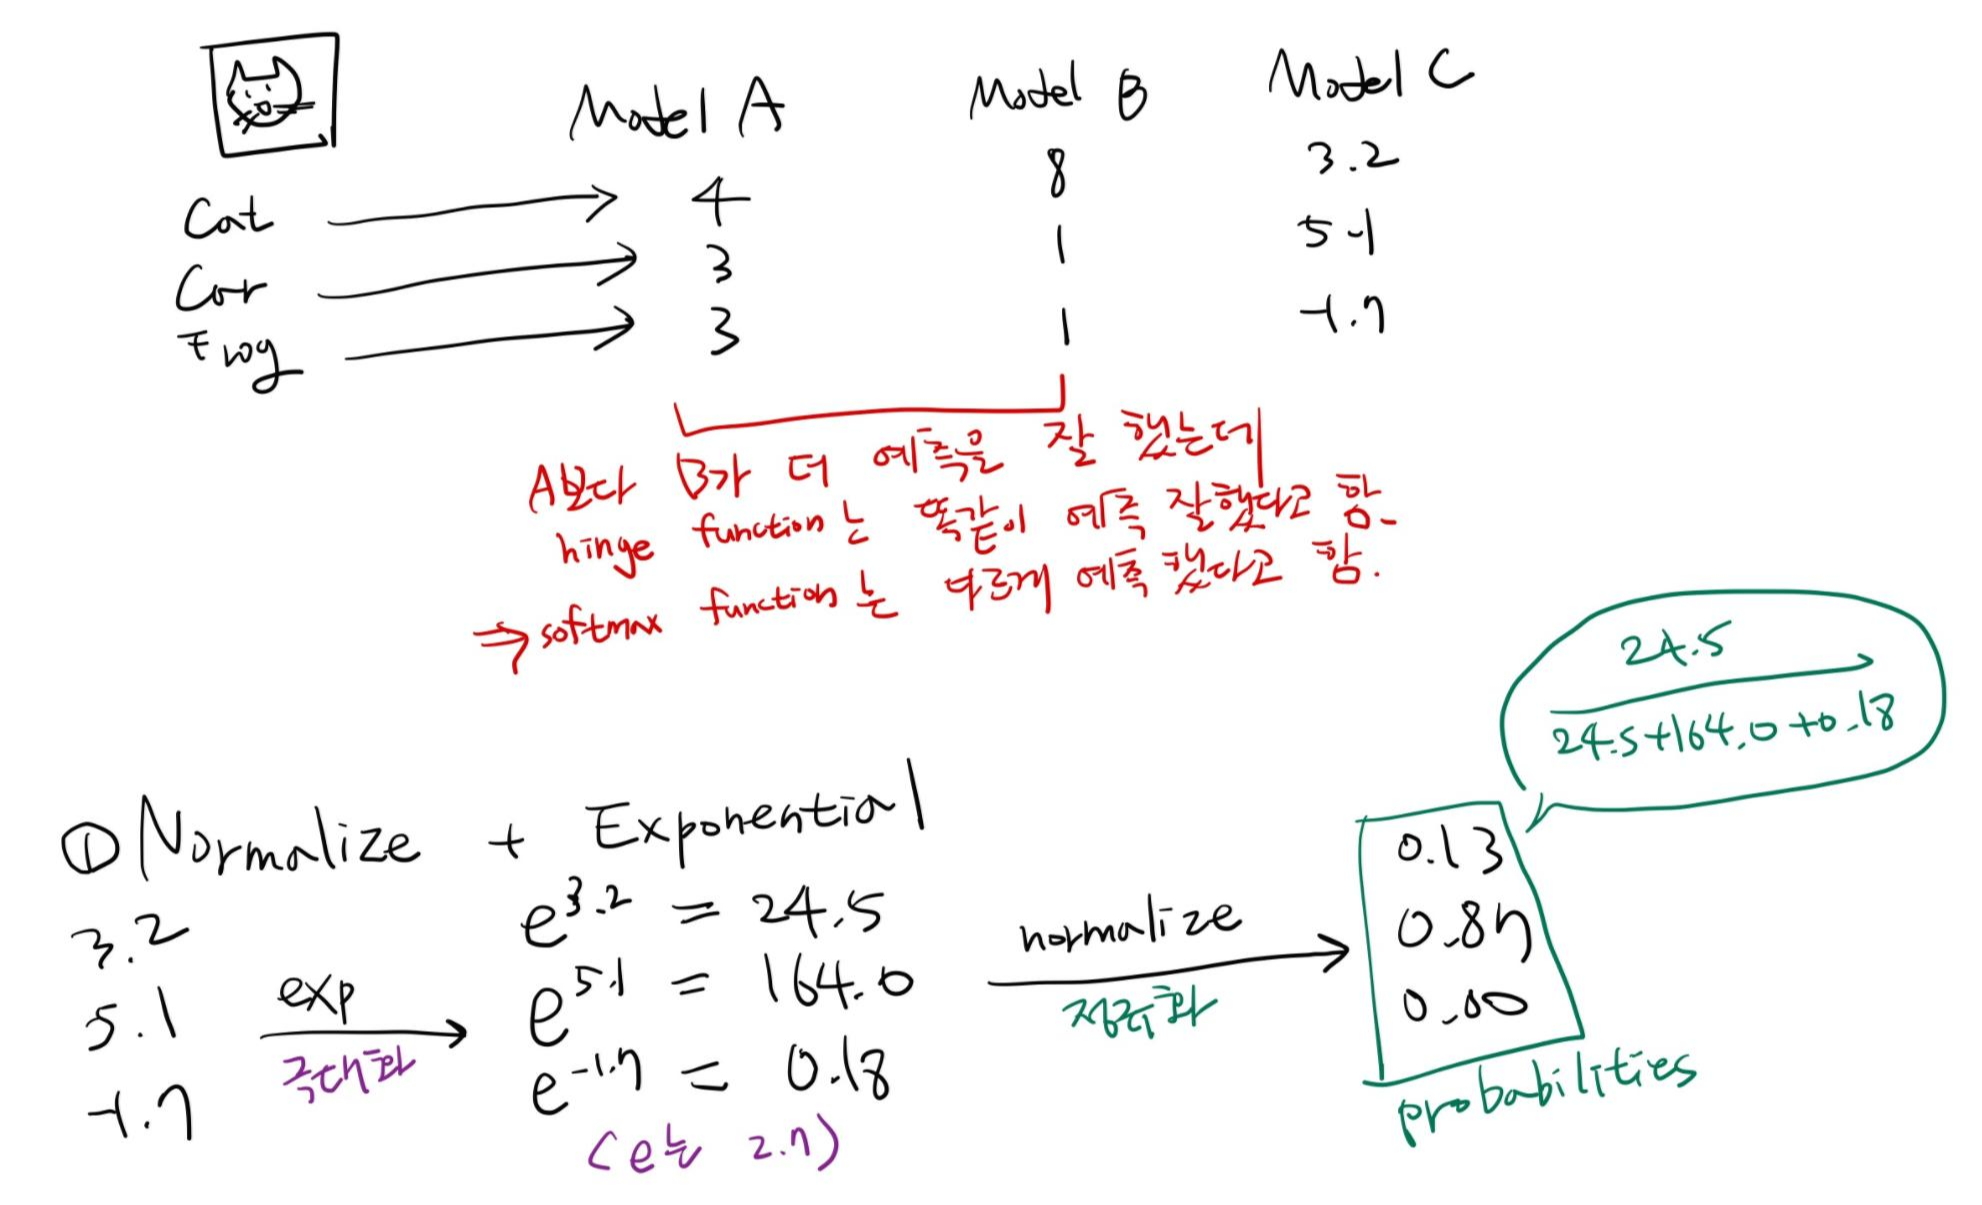 Model A Model B Model C
Cat 4 8 3.2
Car 3 1 5.1
Frog 3 1 -1.7
A보다 B가 더 예측을 잘 했는데
hinge function는 똑같이 예측 잘했다고 함.
⇒ softmax function는 다르게 예측 했다고 함.
24.5
24.5+164.0+0.18
① Normalize + Exponential
3.2
5.1
-1.7
exp
극대화
e^3.2 = 24.5
e^5.1 = 164.0
e^-1.7 = 0.18
(e는 2.7)
normalize
정규화
0.13
0.87
0.00
probabilities